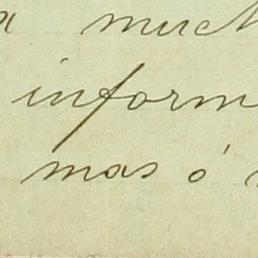 a much
inform
mas ó